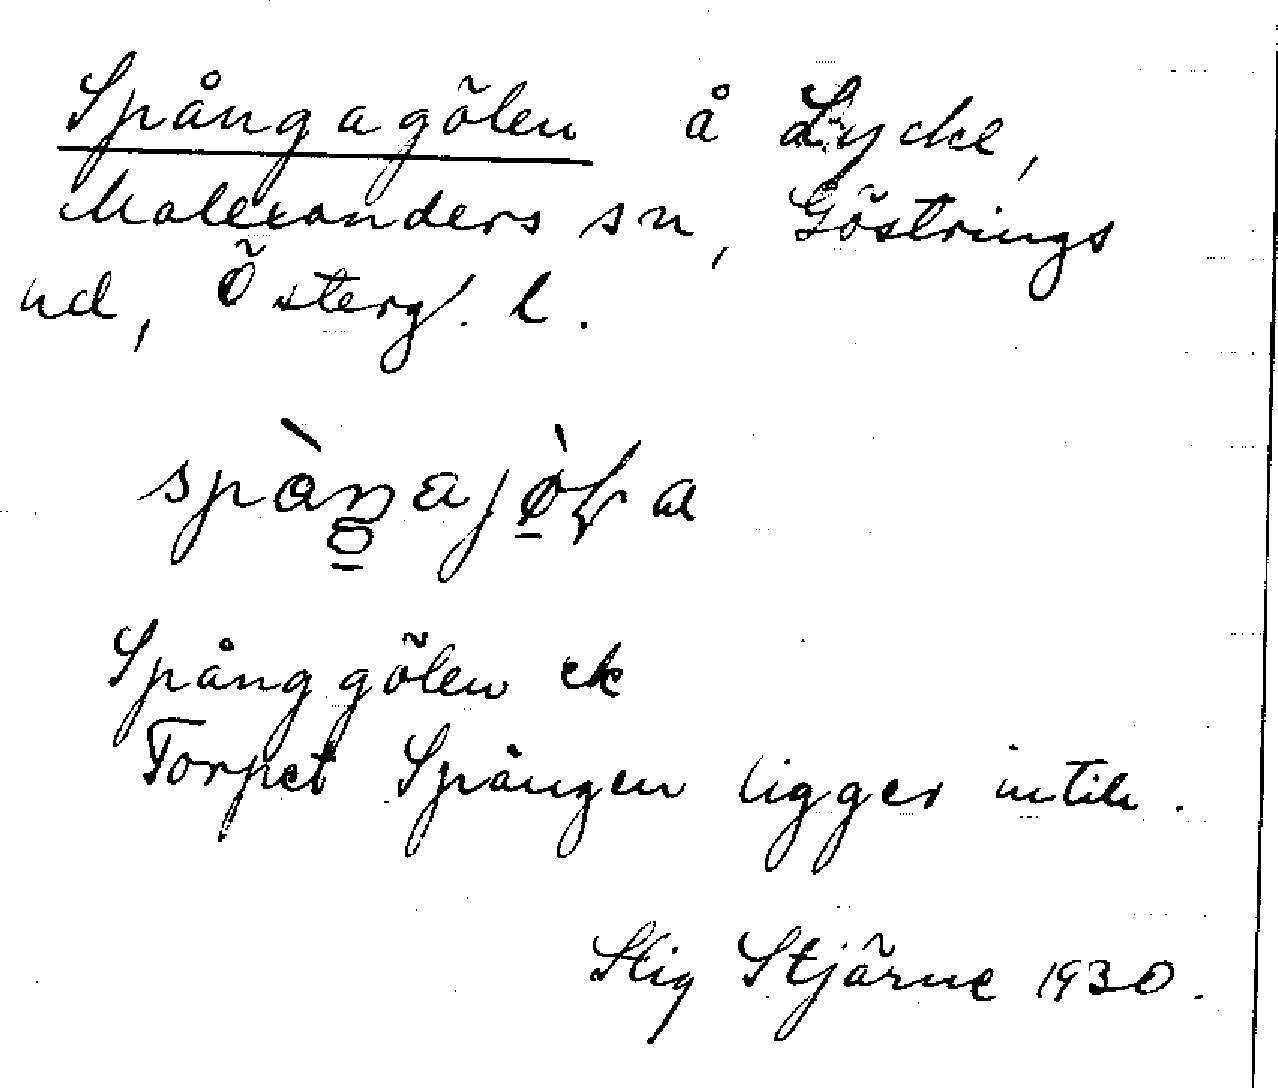 Spångagölen å Lycke,
Malexanders sn, Göstrings
hd, Östergl. l.
Spånggölen ek
Torpet Spången ligger intill.
Stig Stjärne 1930.